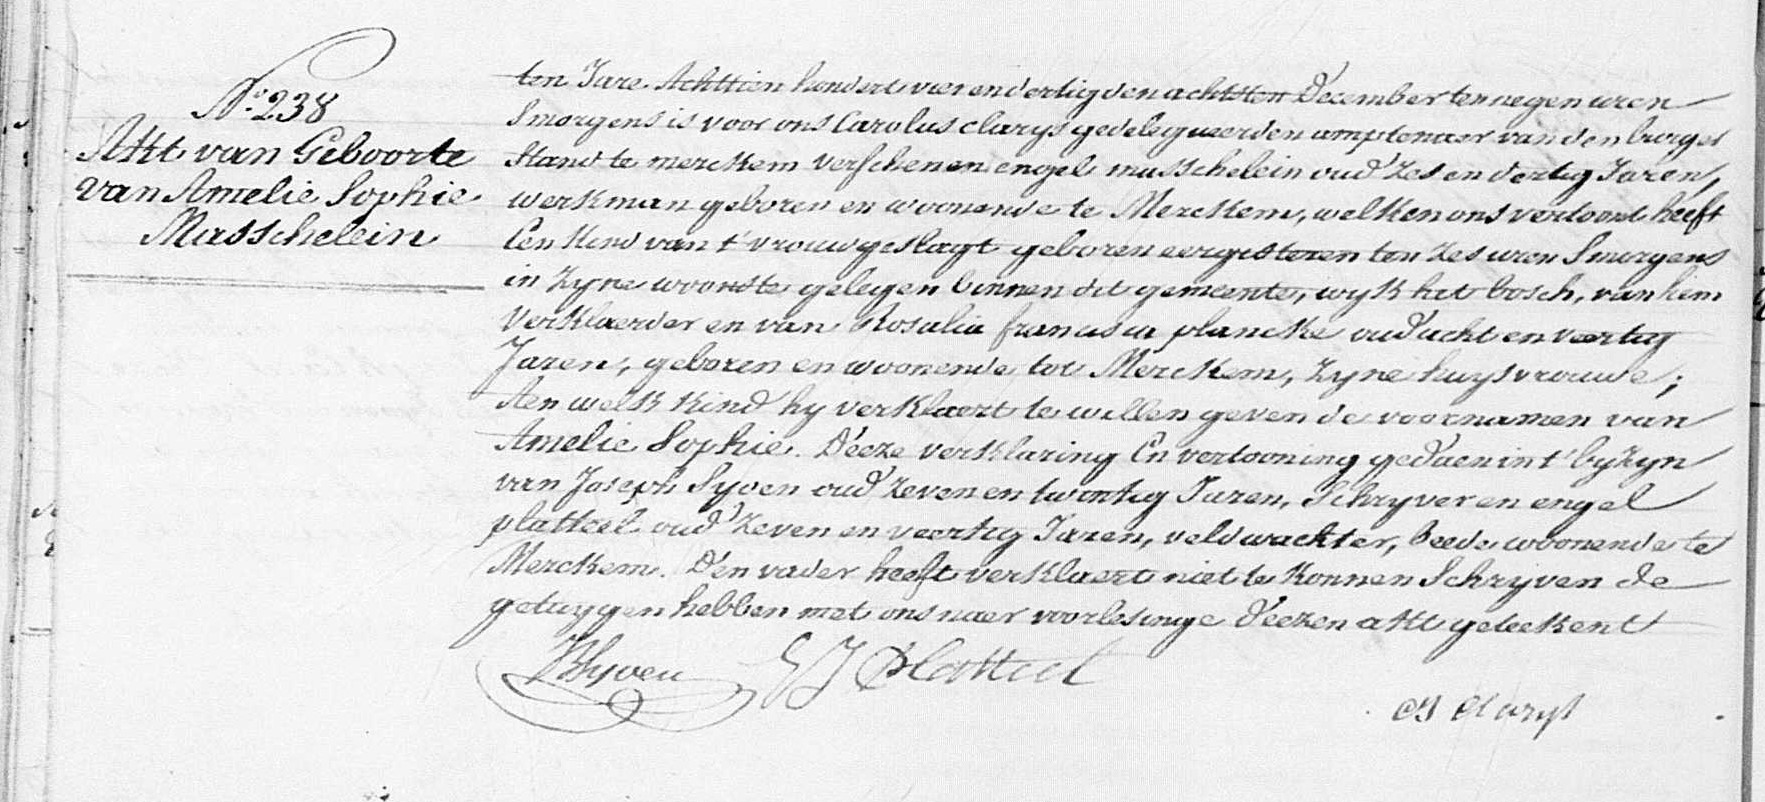 N.° 238
Akt van Geboorte
van Amelie Sophie
Masschelein
ten Jare Achttien hondert vier en dertig den achtsten December ten negen uren
Smorgens is voor ons Carolus Clarys gedelegueerden amptenaer van den burger
stand te merckem verschenen engel masschelein oud zes en dertig Jaren,
werkman geboren en woonende te Merckem, welken ons vertoont heeft
Een Kind van t'vrouw geslagt geboren eergisteren ten zes uren Smorgens
in zyne woonste gelegen binnen dit gemeente, wyk het bosch, van hem
Verklaerder en van Rosalia francisca plancke oud acht en veertig
Jaren, geboren en woonende tot Merckem, zyne huysvrouwe;
Aen welk kind hy verklaert te willen geven de voornamen van
Amelie Sophie. Deeze verklaring En vertooning gedaen in t'byzyn
van Joseph Syoen oud zeven en twintig Jaren, Schryver en engel
platteel oud zeven en veertig Jaren, veldwachter, beede woonende te
Merckem. Den vader heeft verklaert niet te konnen Schryven de
getuygen hebben met ons naer voorlesinge deezen akt geteekent
JSyoen EJ Platteel
CJ Clarys